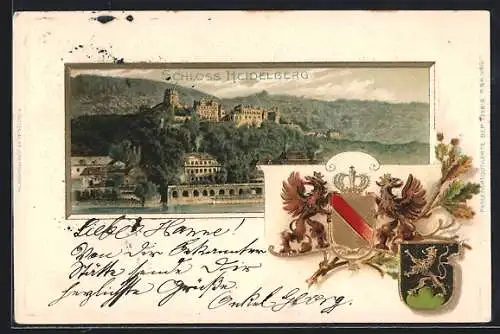 SCHLOSS HEIDELBERG
Liebe Hanne!
Von der bekannten
Stätte sende Dir
herzlichste Grüße
Onkel Georg.